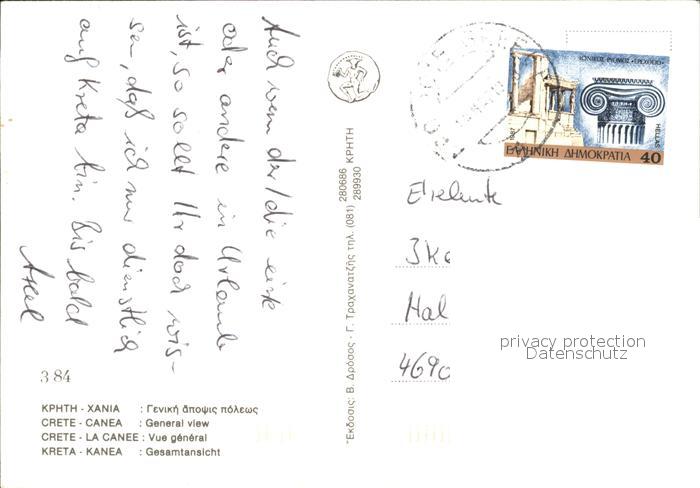 Auch wenn der/die eine
oder andere in Urlaub
ist, so sollt Ihr doch wis-
sen, daß ich nur dienstlich
auf Kreta bin. Bis bald
Axel
3 84
ΚΡΗΤΗ - ΧΑΝΙΑ : Γενική ἄποψις πόλεως
CRETE - CANEA : General view
CRETE - LA CANEE : Vue général
KRETA - KANEA : Gesamtansicht
Ἔκδοσις: Β. Δρόσος - Γ. Τραχανατζῆς τηλ. (081) 280686 ΚΡΗΤΗ
289930
ΙΩΝΙΚΟΣ ΡΥΘΜΟΣ «ΕΡΕΧΘΕΙΟ»
1987
HELLAS
ΕΛΛΗΝΙΚΗ ΔΗΜΟΚΡΑΤΙΑ 40
3Kc
Hal
4690
privacy protection
Datenschutz